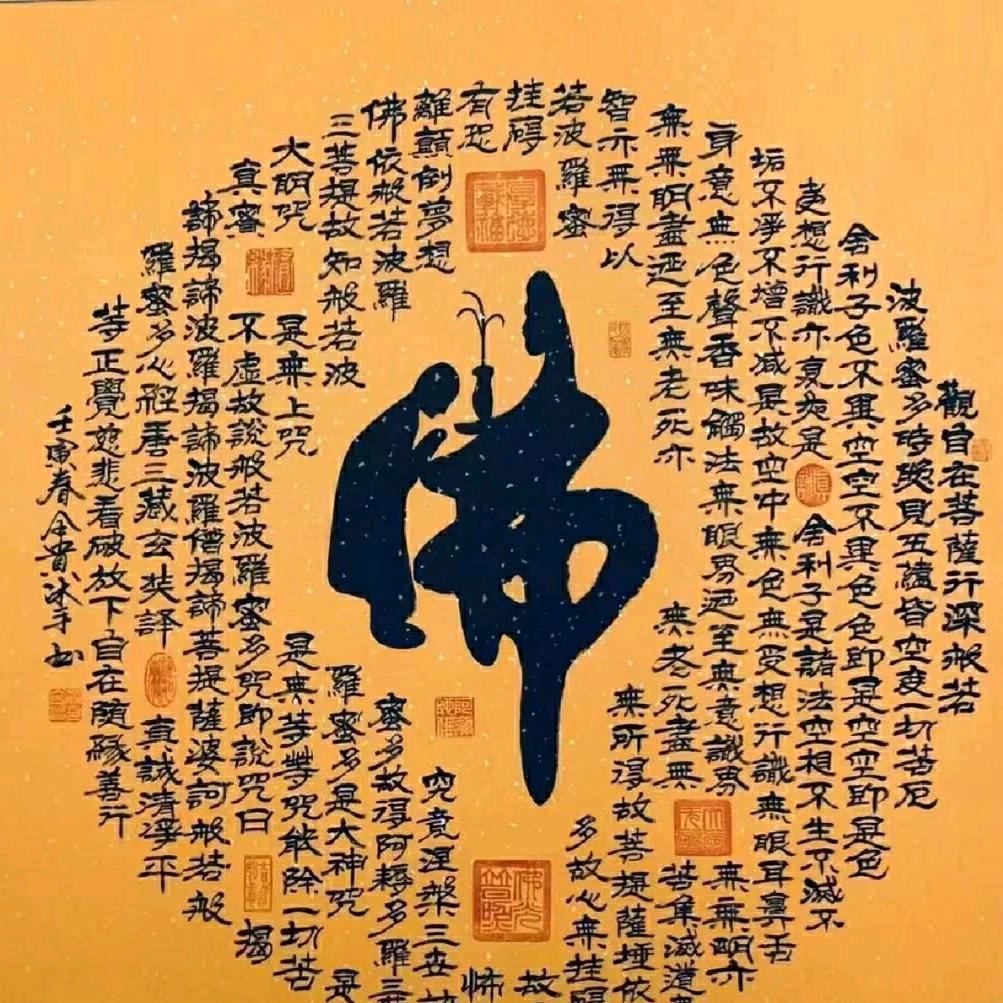 觀自在菩薩行深般若
波羅蜜多時照見五蘊皆空度一切苦厄
舍利子色不異空空不異色色即是空空即是色
受想行識亦复如是
舍利子是諸法空相不生不滅不
垢不淨不增不減是故空中無色無受想行識無眼耳鼻舌
身意無色聲香味觸法無眼界迺至無意識界
無無明亦
無無明盡迺至無老死亦
無老死盡無
苦集滅道無
智亦無得以
無所得故菩提薩埵依
若波羅蜜
多故心無挂碍
挂碍
故
有恐
怖
離顛倒夢想
究竟涅槃三世
佛依般若波羅
蜜多故得阿耨多羅三
三菩提故知般若波
羅蜜多是大神咒
是
大明咒
是無上咒
是無等等咒能除一切苦
真實
不虛故說般若波羅蜜多咒即說咒曰
揭
諦揭諦波羅揭諦波羅僧揭諦菩提薩婆訶般若般
羅蜜多心經唐三藏玄奘譯
真誠清淨平
等正覺慈悲看破放下自在隨緣善行
壬寅春全貴沐手书
佛
佛光普照